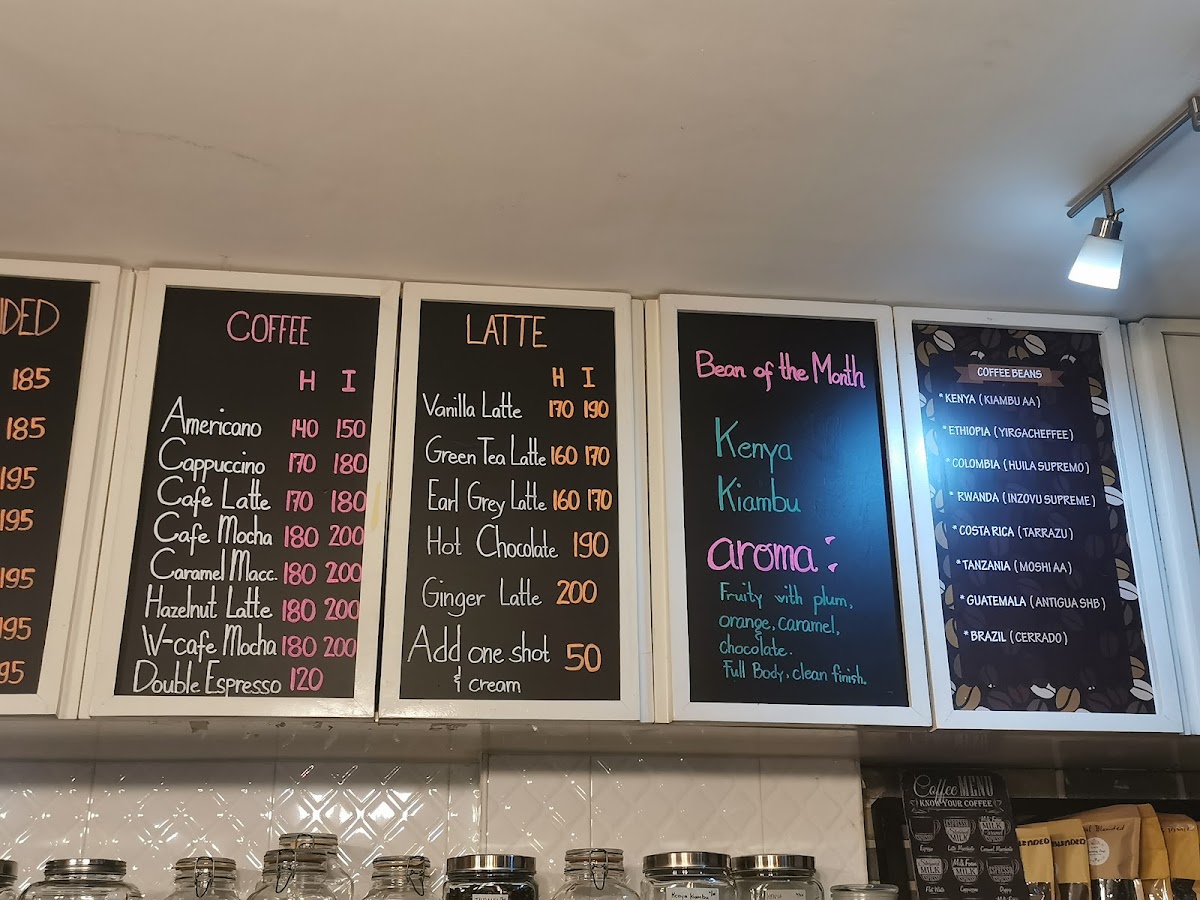 DED
185
185
195
195
195
195
95
COFFEE
H I
Americano 140 150
Cappuccino 170 180
Cafe Latte 170 180
Cafe Mocha 180 200
Caramel Macc. 180 200
Hazelnut Latte 180 200
W-cafe Mocha 180 200
Double Espresso 120
LATTE
H I
Vanilla Latte 170 190
Green Tea Latte 160 170
Earl Grey Latte 160 170
Hot Chocolate 190
Ginger Latte 200
Add one shot 50
& cream
Bean of the Month
Kenya
Kiambu
aroma :
Fruity with plum,
orange, caramel,
chocolate.
Full Body, clean finish.
COFFEE BEANS
* KENYA ( KIAMBU AA )
* ETHIOPIA ( YIRGACHEFFEE )
* COLOMBIA ( HUILA SUPREMO )
* RWANDA ( INZOVU SUPREME )
* COSTA RICA ( TARRAZU )
* TANZANIA ( MOSHI AA )
* GUATEMALA ( ANTIGUA SHB )
* BRAZIL ( CERRADO )
Coffee MENU
KNOW YOUR COFFEE
ESPRESSO
MILK
MILK
Espresso
Latte Macchiato
Caramel Macchiato
MILK
MILK
ESPRESSO
Flat White
Cappuccino
Doppio
Kenya Kiambu